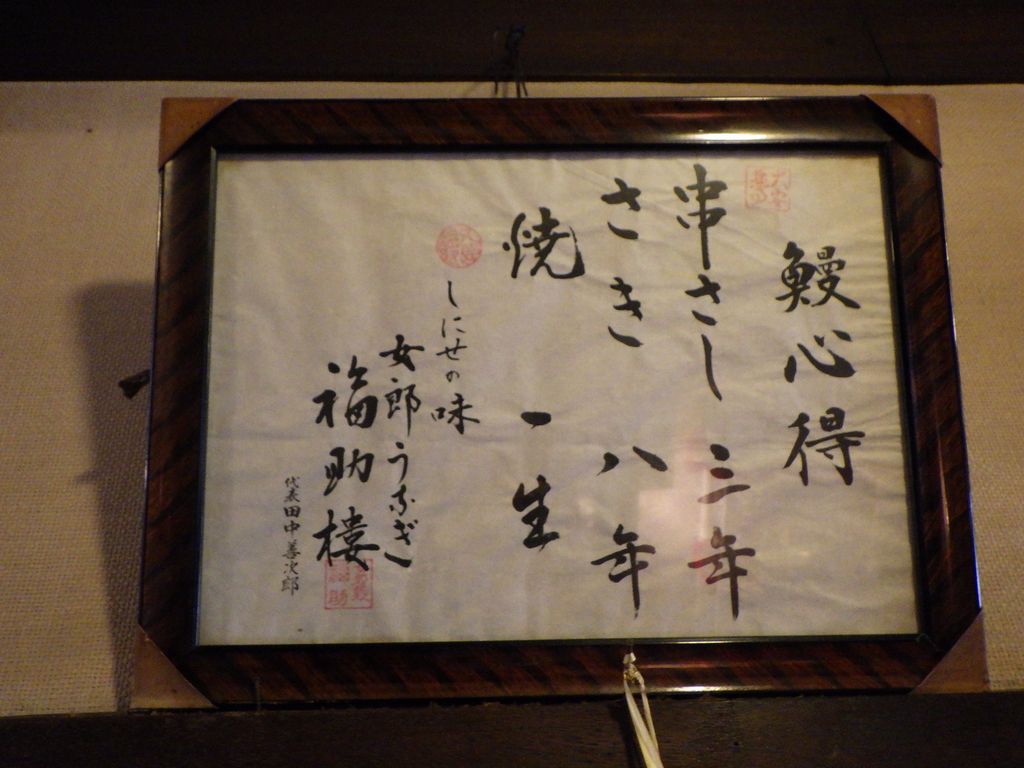 鰻心得
串さし 三年
さき 八年
焼 一生
しにせの味
女郎うなぎ
福助樓
代表田中善次郎